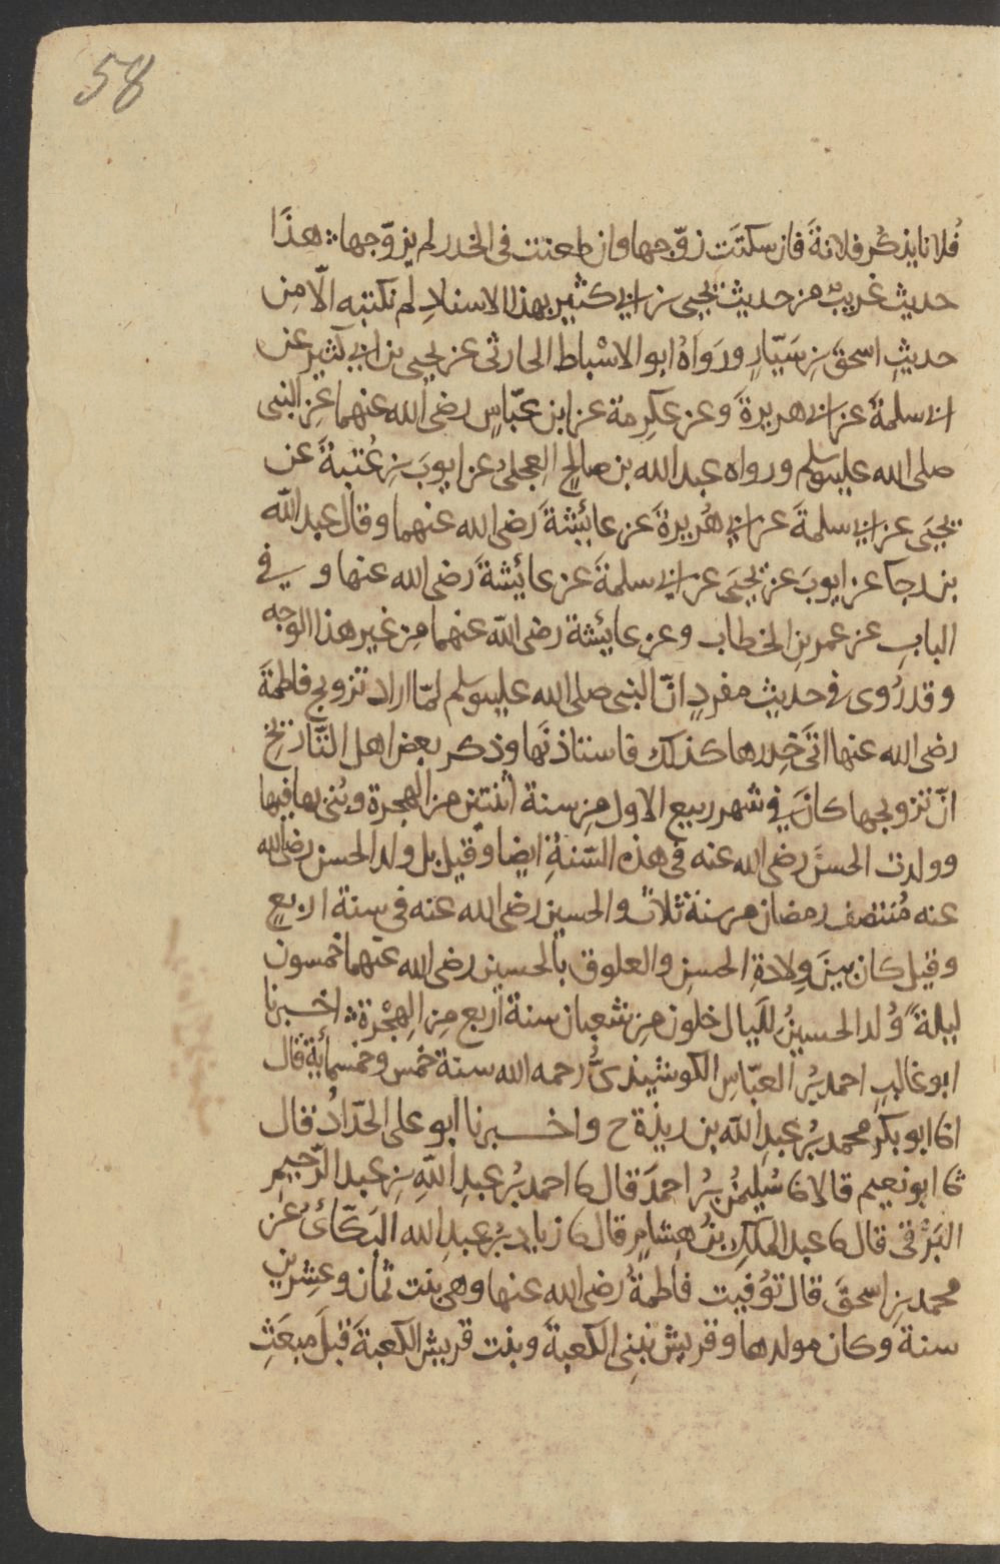 58
فُلانا يذكُر فلانةً فان سكتَت زوّجها وان طعنت فى الخدر لم يزوّجها ۞ هذا
حديث غريبٌ من حديث يحيى بن ابى كثير بهذا الاسنادِ لم نكتبه الّا مِن
حديثِ اسحق بنِ سَيّارٍ ورَواهُ ابو الاسْباط الحارثى عن يحيى بن ابى كثير عن
ابى سلمةَ عن ابى هريرةَ وعن عكرِمة عن ابن عبّاسٍ رضى الله عنهما عنِ النبى
صلى الله عليه وسلم ورواه عبد الله بن صالح العِجلىُّ عن ايوبَ بنِ عُتبةَ عن
يحيَى عن ابى سلمةَ عن ابى هُريرةَ عن عائشةَ رضى الله عنهما وقال عبد الله
بن رجا عن ايوبَ عن يحيَى عن ابى سلمةَ عن عائشةَ رضى الله عنها و فى
البابِ عن عمر بنِ الخطاب وعن عائشة رضى الله عنهما مِن غير هذا الوجه
وقد رُوى فى حديث مفردٍ انّ النبى صلى الله عليه وسلم لمّا اراد تزويج فاطمةَ
رضى الله عنها اتَى خِدرها كذلك فاستاذنَها وذكر بعض اهل التّاريخ
انّ تزويجها كانَ فى شهر ربيع الاول مِن سنة اثنتين من الهِجرة وبُنى بها فيها
وولدت الحسنَ رضى الله عنه فى هذه السّنةِ ايضا وقيل بل ولد الحسن رضى الله
عنه مُنتصف رمضان من سنة ثلاث والحسين رضى الله عنه فى سنة اربع
وقيل كان بينَ وِلادةِ الحسنِ والعلوق بالحسين رضى الله عنهما خمسون
ليلةً وُلد الحسينُ لليالٍ خلون مِن شعبان سنة اربع مِن الهِجْرة ۞ اخبرنا
ابو غالبٍ احمد بنُ العبّاسِ الكوشيذىُّ رحمه الله سنة خمس وخمسمائة قال
انا ابو بكر محمد بنُ عبدِ الله بن ريذة ح واخبرنا ابو على الحدّادُ قال
ثا ابو نعيم قالا ثا سُليمٰنُ بنُ احمدَ قال ثا احمد بنُ عبدِ اللهِ بنِ عبد الرّحيمِ
البَرْقى قال ثا عبد الملكِ بنُ هِشامٍ قال ثا زياد بنُ عبدِ الله البَكّائىُ عن
محمد بنِ اسحقَ قال توُفيت فاطمةُ رضى الله عنها وهى بنت ثمان وعِشرينِ
سنة وكان مولدها وقريش تبنِى الكعبةَ وبنت قريش الكعبةَ قبلَ مبعَثِ